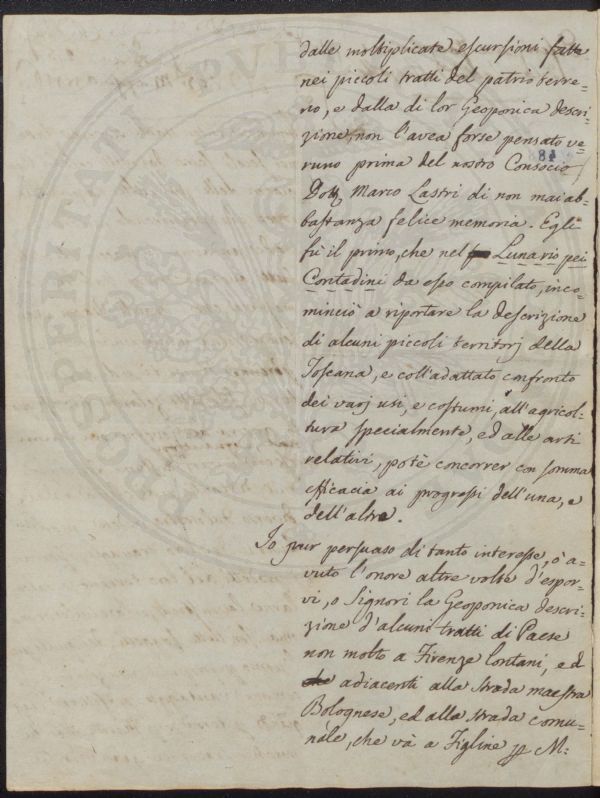 dalle moltiplicate escursioni fatte
nei piccoli tratti del patrio terre=
no, e dalla di lor Geoponica descri=
zione, non l'avea forse pensato ve=
84
runo prima del nostro Consocio
Dott Marco Lastri di non mai ab=
bastanza felice memoria. Egli
fù il primo, che nel Lunario pei
Contadini da esso compilato, inco=
minciò a riportare la descrizione
di alcuni piccoli territorj della
Toscana, e coll'adattato confronto
dei varj usi, e costumi, all'agricol=
tura specialmente, ed alle arti
relativi, potè concorrer con somma
efficacia ai progressi dell'una, e
dell'altre.
Io pur persuaso di tanto interesse, ò a=
vuto l'onore altre volte d'espor=
vi, o Signori la Geoponica descri=
zione d'alcuni tratti di Paese
non molto a Firenze lontani, ed
adiacenti alla strada maestra
Bolognese, ed alla strada comu=
nale, che và a Figline p M: